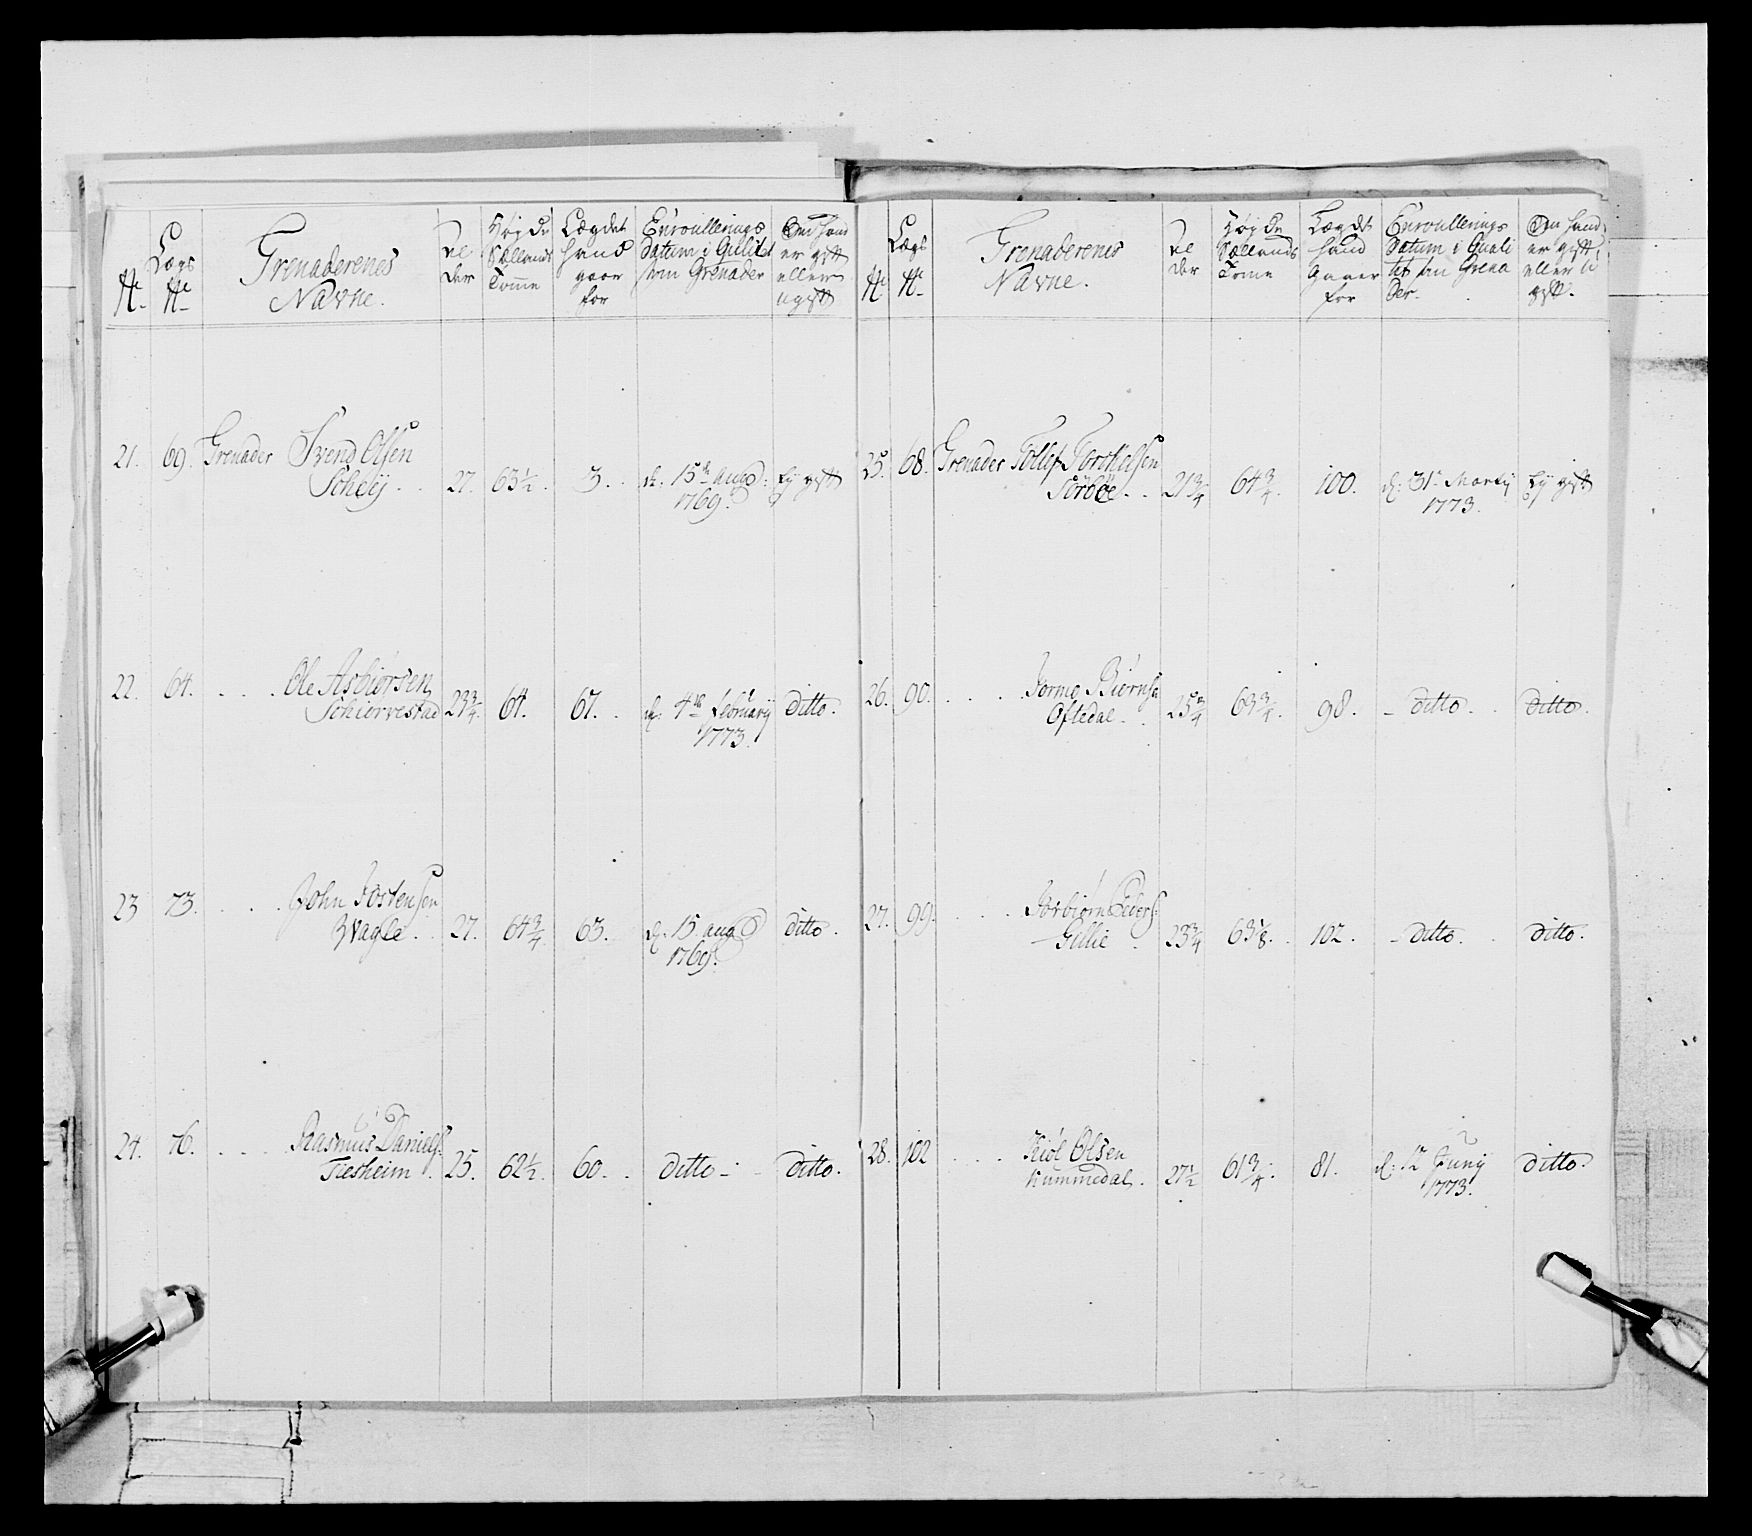 №
Lægs
№
Grenaderenes
Navne.
Al
der
Høyde
Sællands
Tomme
Lægdet
hand
gaar
for
Enroullerings
Datum i Qulitet
som Grenader
Om hand
er gift
eller
ugift
21. 69. Grenader Svend Olsen
27. 63½. 3. d. 15de Aug: Ey gift
1769.
22. 64. Ole Asbiørsen
Schiervestad 23¾. 64. 67. d. 4de Februarij ditto.
1773.
23 73. John Jostensen
Wagle. 27. 64¾ 63. d. 15. Aug ditto.
1769.
24. 76. Rasmus Daniels:
Tiesheim. 25. 62½. 60. ditto - ditto.
№
Lægs
№
Grenaderenes
Navne.
Al
der
Høyde
Sællands
Tome
Lægdt
hand
Gaaer
for
Enroullerings
Datum i Quali
tet som Grena
der.
Om hand
er gift
eller u
gift.
25. 68. Grenader Tollef Torchelsen
Sørbøe. 21¾ 64¾. 100. d: 31. Martij Ey gift
1773.
26. 90. Biørnse
Oftedal. 25¾ 63¾. 98. ditto. ditto.
27. 99. Torbiørn Peders:
Gillie 23¾ 63⅛. 102. ditto. ditto.
28. 102 Kiøl Olsen
Hummedal. 27½ 61¾. 81. d: Junij ditto.
1773.